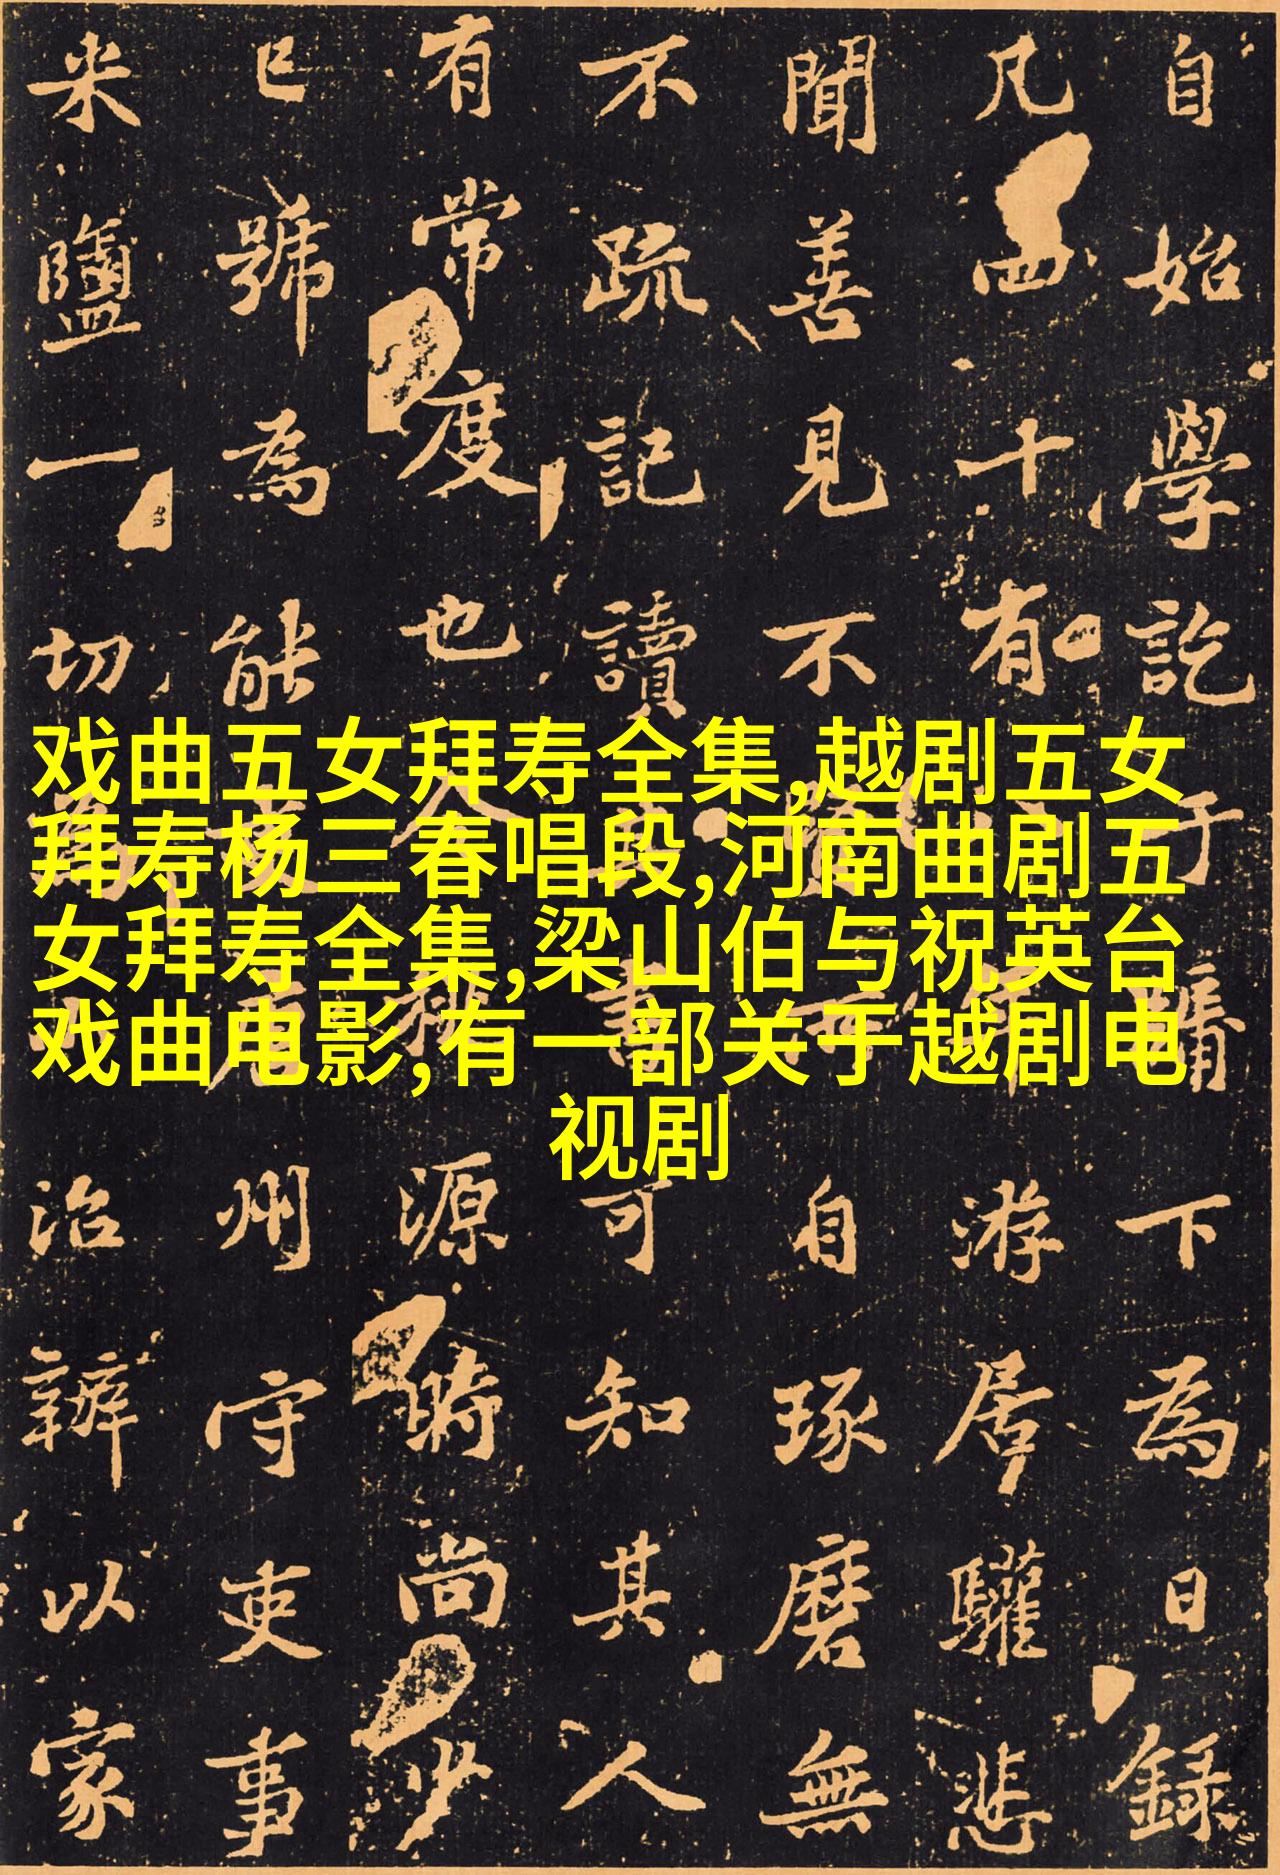 戏曲五女拜寿全集,越剧五女
拜寿杨三春唱段,河南曲剧五
女拜寿全集,梁山伯与祝英台
戏曲电影,有一部关于越剧电
视剧
自始學訖于牖下為日錄
凡四十有游居驩悲
聞善見不自琢磨無
不疏記讀書可知其人
有常度也源時尚少
已號為能州守吏事
米鹽一切為治辦以家